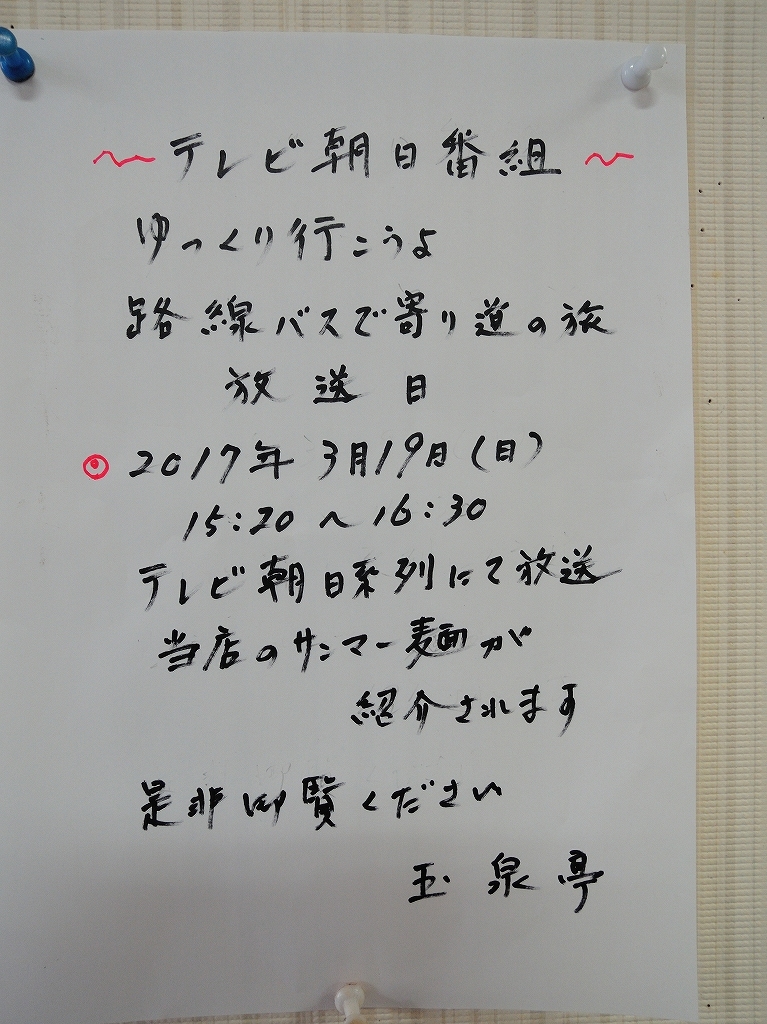 〜テレビ朝日番組〜
ゆっくり行こうよ
路線バスで寄り道の旅
放送日
◎2017年3月19日(日)
15:20〜16:30
テレビ朝日系列にて放送
当店のサンマー麺が
紹介されます
是非御覧ください
玉泉亭